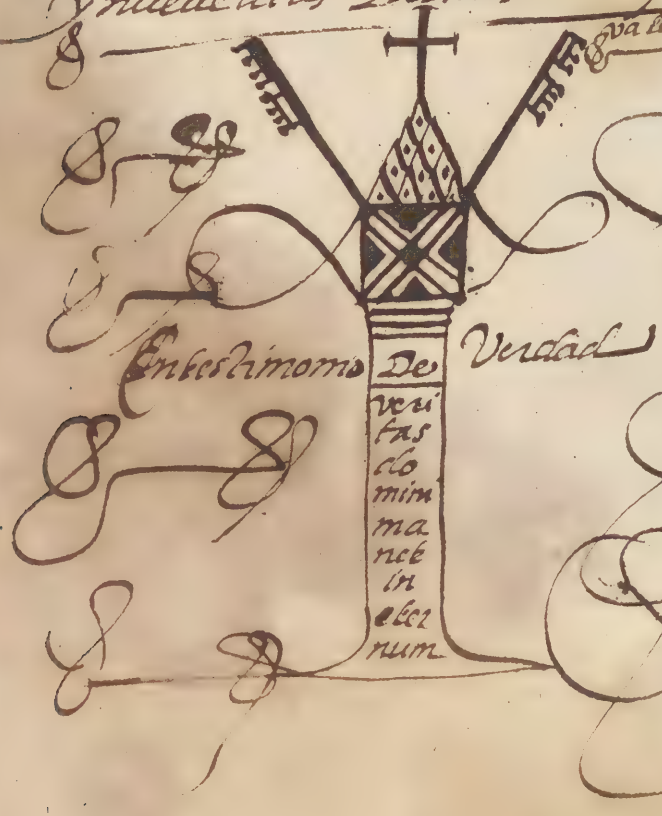 En testimonio De Verdad
veri
tas
do
mini
ma
net
in
eter
num